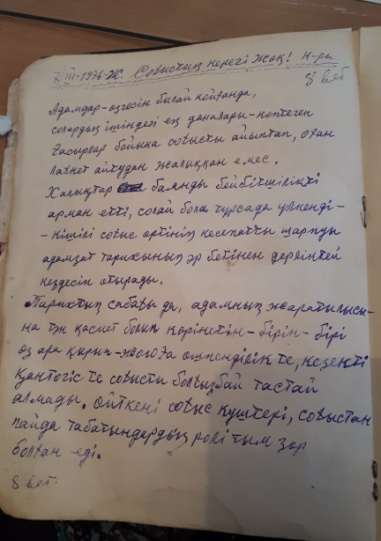 7/III-1976-ж. Соғыстың керегі жоқ! К-ры
8 бет
Адамдар-өзгесін былай қойғанда,
солардың ішіндегі ең даналары-көптеген
ғасырлар бойына соғысты айыптап, оған
лағнет айтудан жалыққан емес.
Халықтар баянды бейбітшілікті
арман етті, солай бола тұрсада үлкенді-
-кішілі соғыс өртінің кесепатты шарпуы
адамзат тарихының әр бетінен дерліктей
кездесіп отырады.
Тарихтың сабағы да, адамның жаратылысы-
на тән қасиет болып көрінетін-бірін-бірі
өз ара қырып-жоюға өшпенділік те, кезекті
қантөгіс те соғысты болғызбай тастай
алмады. Өйткені соғыс күштері, соғыстан
пайда табатындардың ролі тым зор
болған еді.
8 бет.